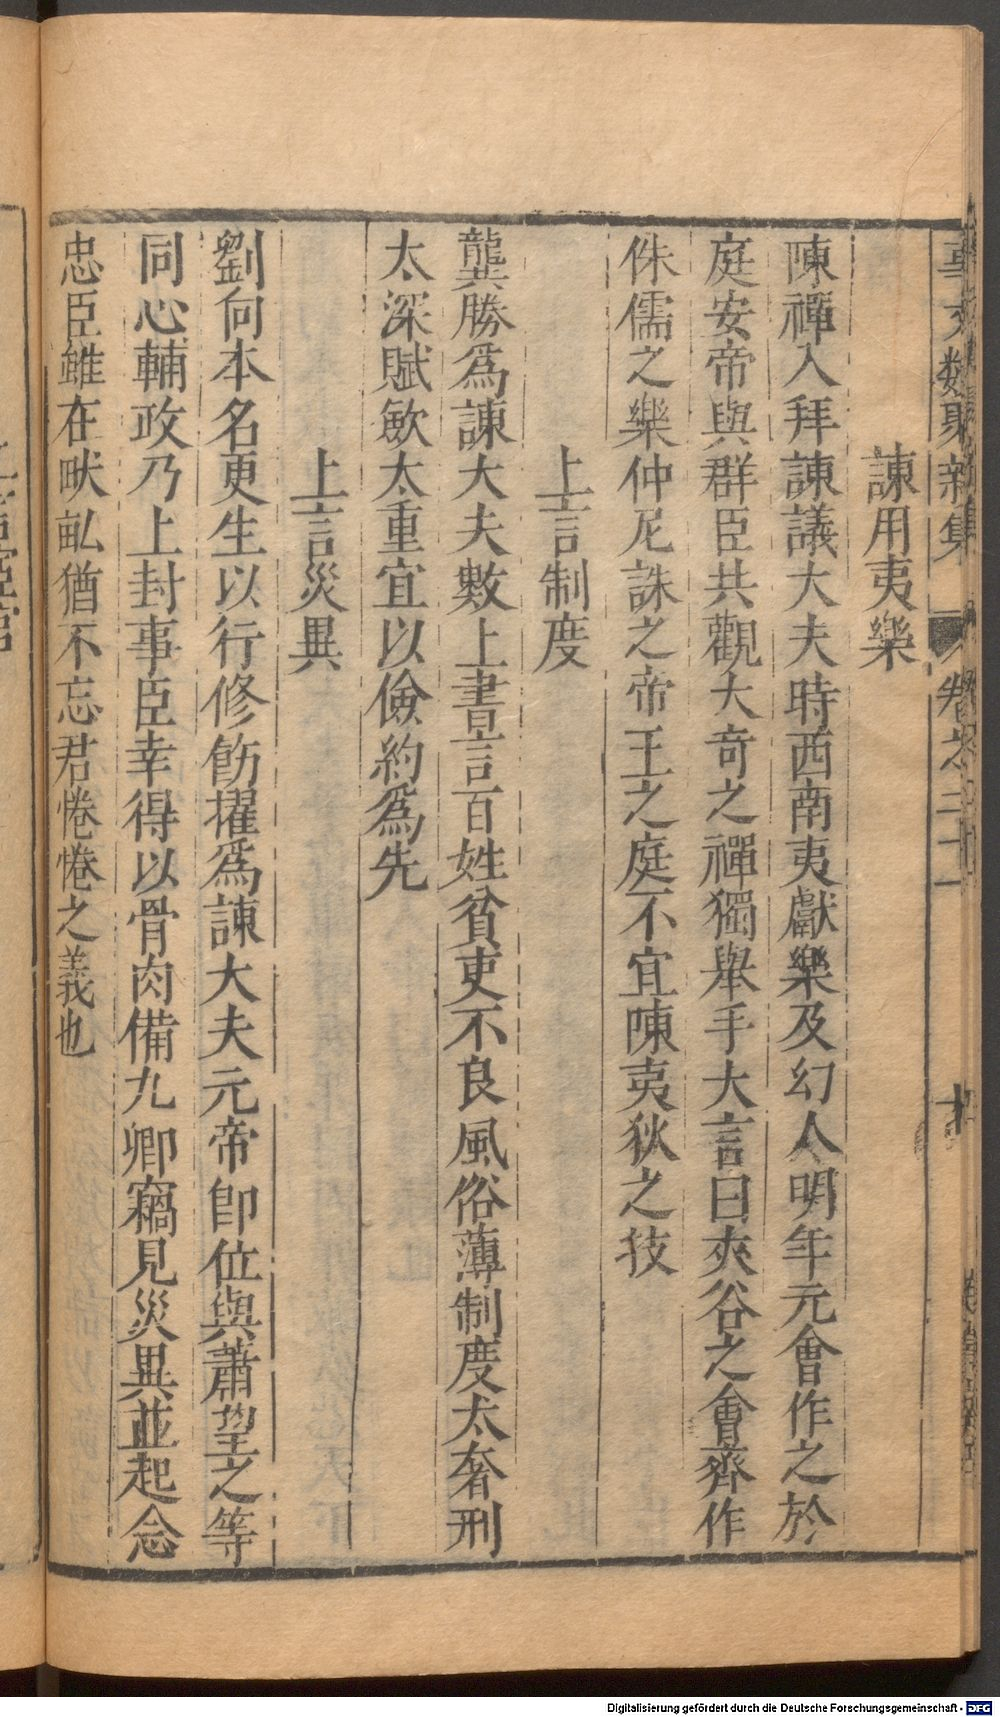 事文類聚新集 卷之二十一
諫用夷樂
陳禪入拜諫議大夫時西南夷獻樂及幻人明年元會作之於
庭安帝與群臣共觀大奇之禪獨舉手大言曰夾谷之會齊作
侏儒之樂仲尼誅之帝王之庭不宜陳夷狄之技
上言制度
龔勝爲諫大夫數上書言百姓貧吏不良風俗薄制度太奢刑
太深賦斂太重宜以儉約爲先
上言災異
劉向本名更生以行修飭擢爲諫大夫元帝卽位與蕭望之等
同心輔政乃上封事臣幸得以骨肉備九卿竊見災異並起念
忠臣雖在畎畝猶不忘君惓惓之義也
Digitalisierung gefördert durch die Deutsche Forschungsgemeinschaft - DFG